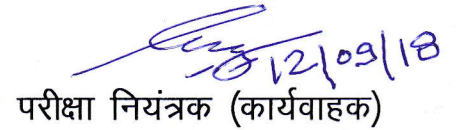 12/09/18
परीक्षा नियंत्रक (कार्यवाहक)